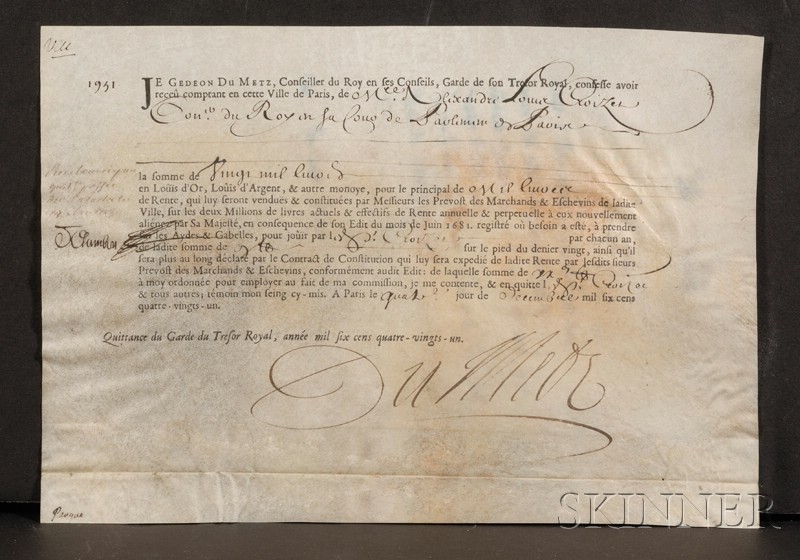 1951
JE GEDEON DU METZ, Conseiller du Roy en ses Conseils, Garde de son Tresor Royal, confesse avoir
reçeû comptant en cette Ville de Paris, de Mre Alexandre Louis
Conr du Roy en sa Cour de
la somme de Vingt mil livres
en Loüis d'Or, Loüis d'Argent, & autre monoye, pour le principal de Mil livres
de Rente, qui luy seront venduës & constituées par Messieurs les Prevost des Marchands & Eschevins de ladite
Ville, sur les deux Millions de livres actuels & effectifs de Rente annuelle & perpetuelle à eux nouvellement
aliénez par Sa Majesté, en consequence de son Edit du mois de Juin 1681. registré où besoin a esté, à prendre
sur les Aydes & Gabelles, pour joüir par l par chacun an,
de ladite somme de sur le pied du denier vingt, ainsi qu'il
sera plus au long déclaré par le Contract de Constitution qui luy sera expedié de ladite Rente par lesdits sieurs
Prevost des Marchands & Eschevins, conformément audit Edit: de laquelle somme de
à moy ordonnée pour employer au fait de ma commission, je me contente, & en quitte l
& tous autres; témoin mon seing cy-mis. A Paris le quatre jour de Decembre mil six cens
quatre-vingts-un.
Quittance du Garde du Tresor Royal, année mil six cens quatre-vingts-un.
Du Metz
SKINNER